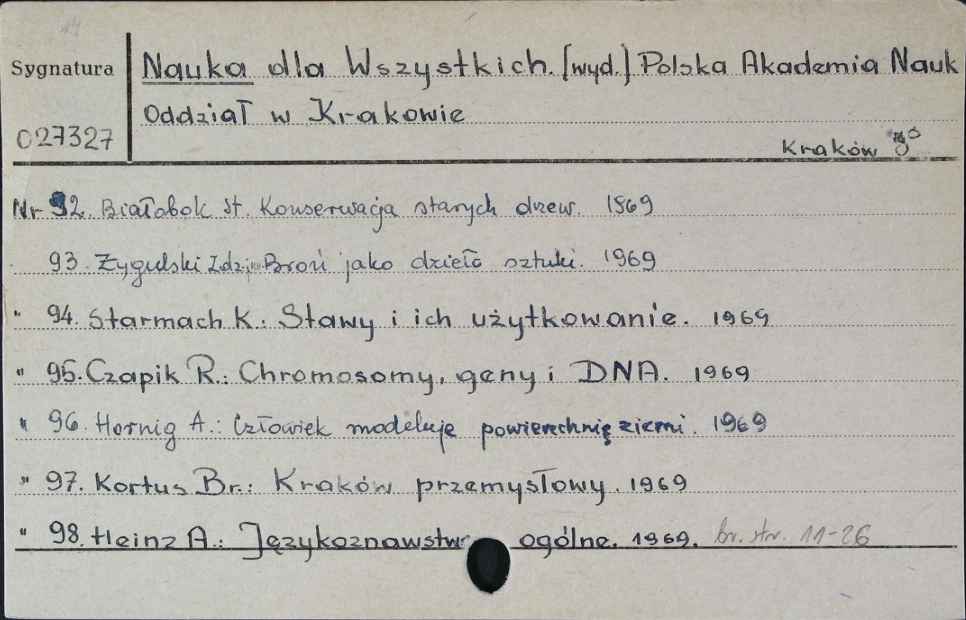 Sygnatura
Nauka dla Wszystkich. [wyd.] Polska Akademia Nauk
Oddział w Krakowie
027327
Kraków 8°
Nr 92. Białobok St. Konserwacja starych drzew. 1969
93. Zygulski Zdz. Broń jako dzieło sztuki. 1969
" 94. Starmach K.: Stawy i ich użytkowanie. 1969
" 95. Czapik R.: Chromosomy, geny i DNA. 1969
" 96. Hornig A.: Człowiek modeluje powierzchnię ziemi. 1969
" 97. Kortus Br.: Kraków przemysłowy. 1969
" 98. Heinz A.: Językoznawstwo ogólne. 1969. br. str. 11-26